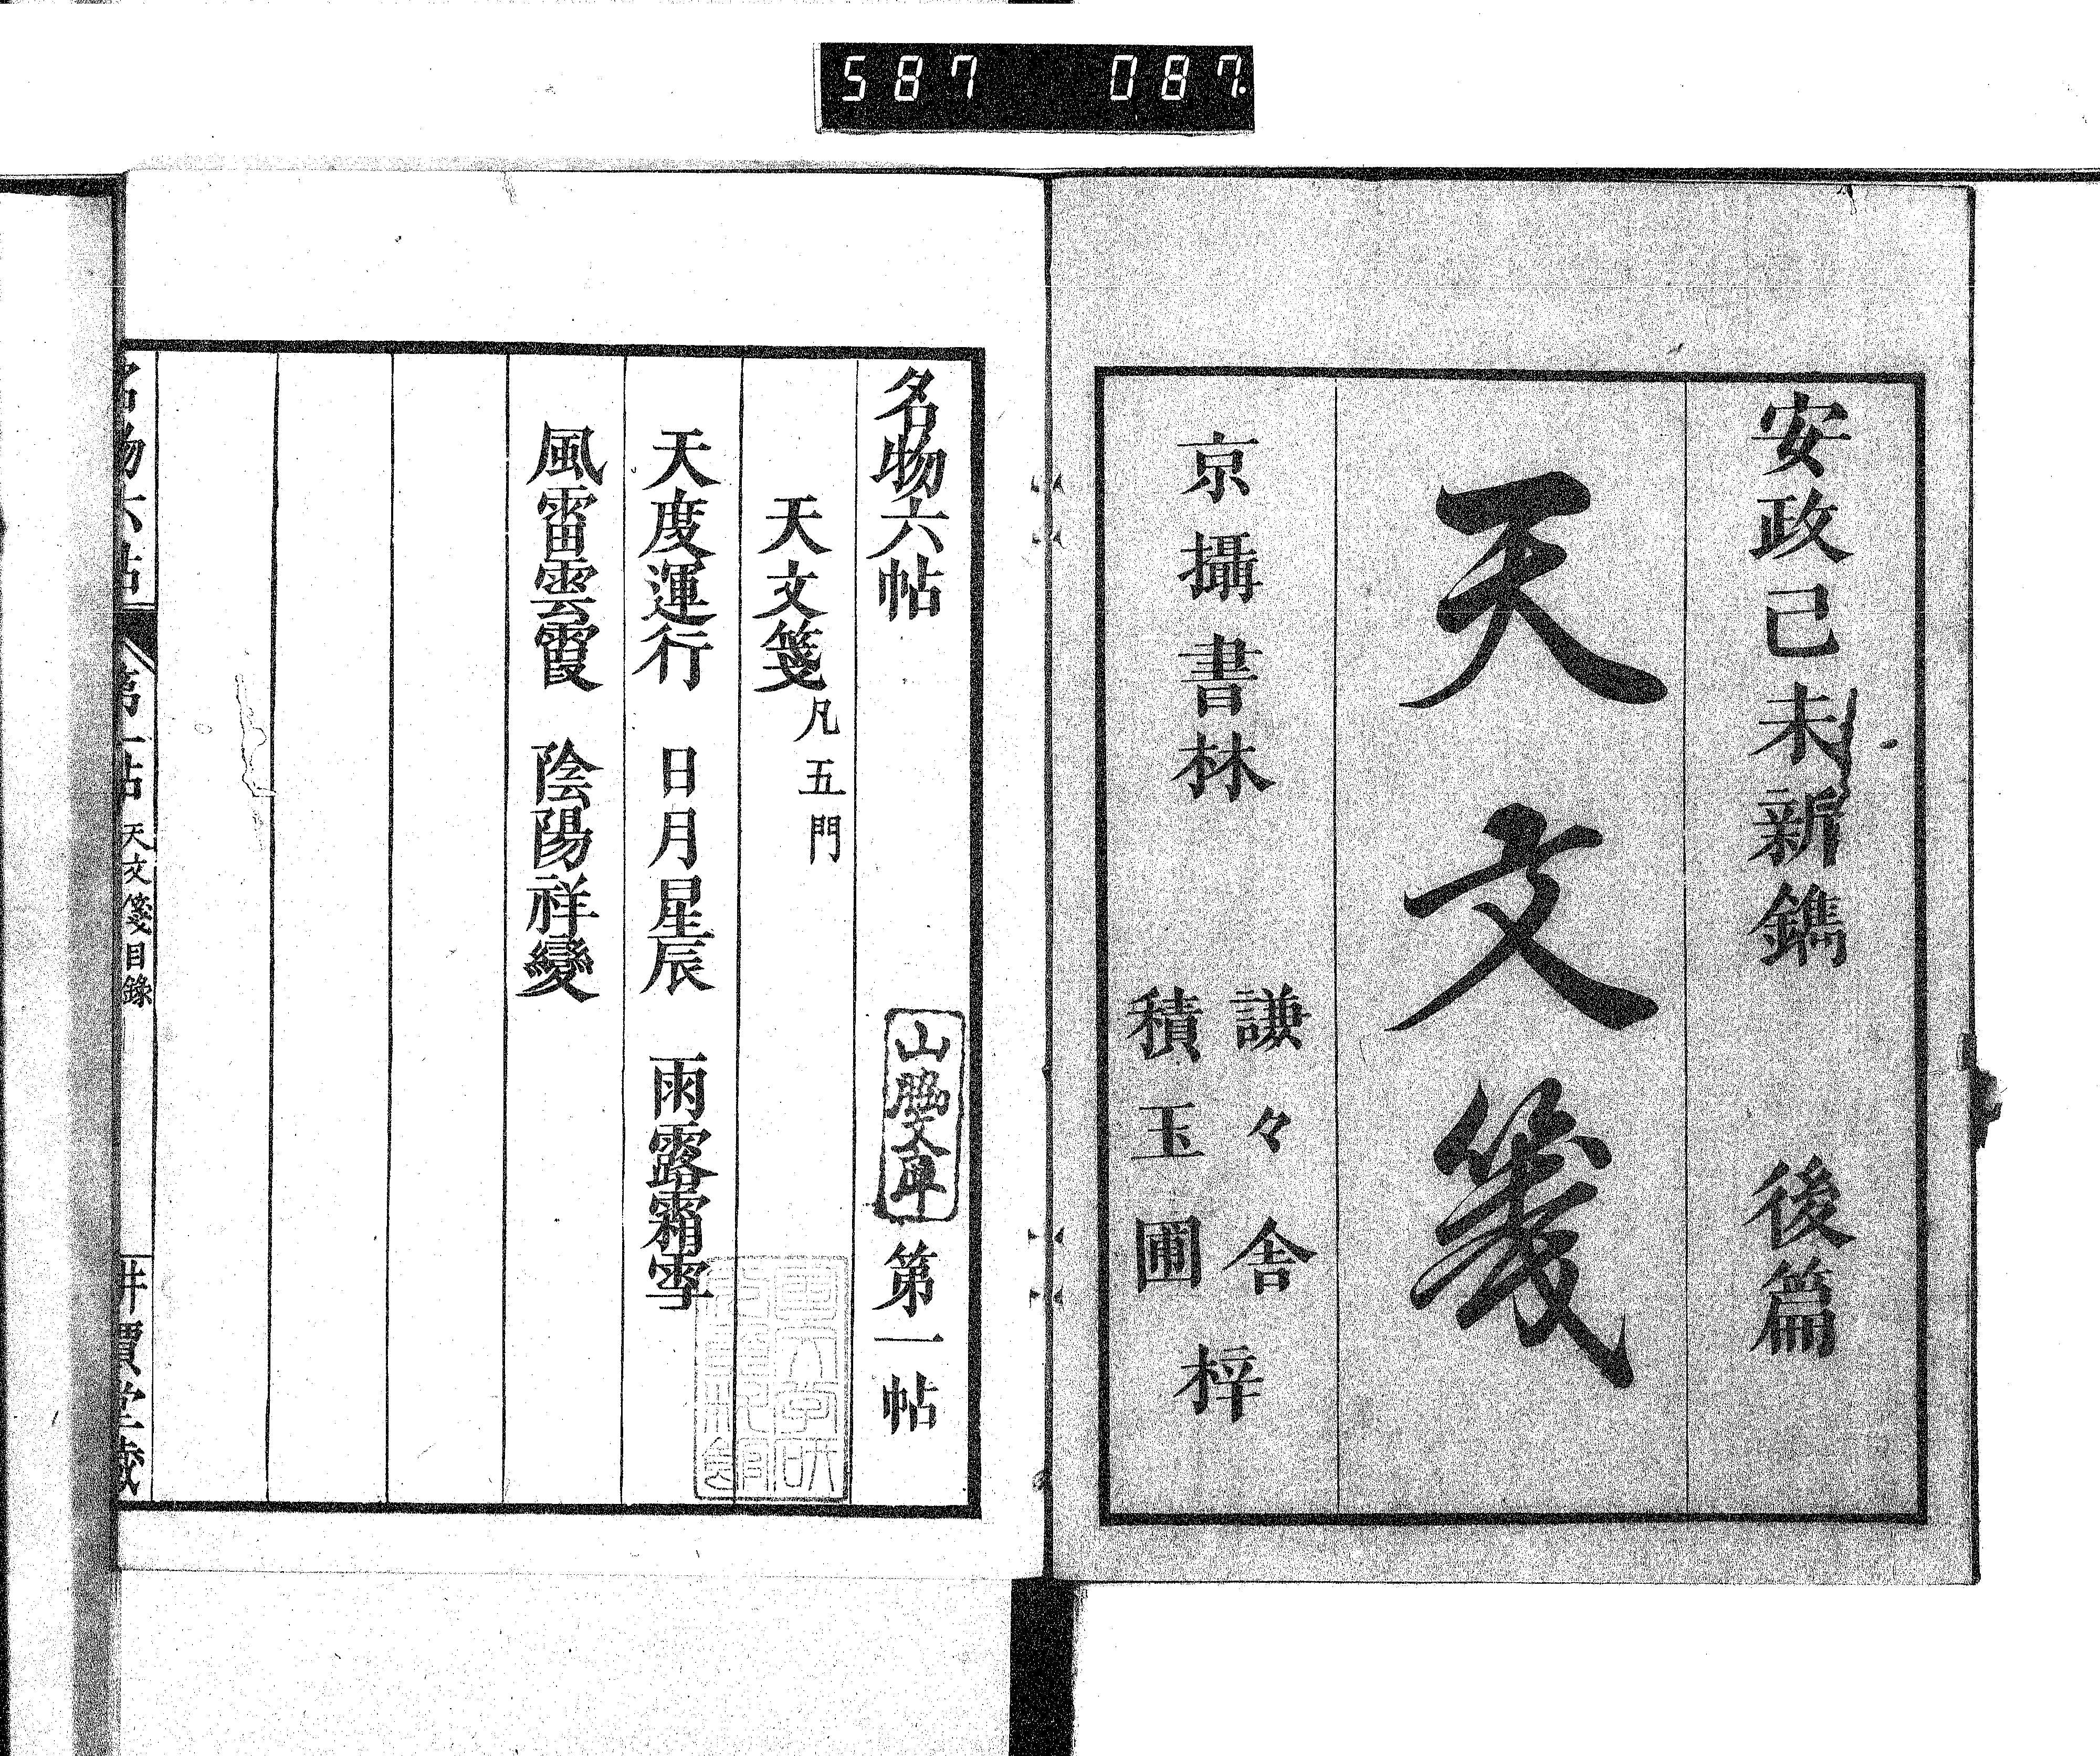 587 087
安政己未新鐫 後篇
天文箋
京攝書林 謙々舎
積玉圃 梓
名物六帖 第一帖
山脇文庫
天文箋 凡五門
天度運行 日月星辰 雨露霜雪
風雷雲霞 陰陽祥變
名物六帖 第一帖 天文箋目錄